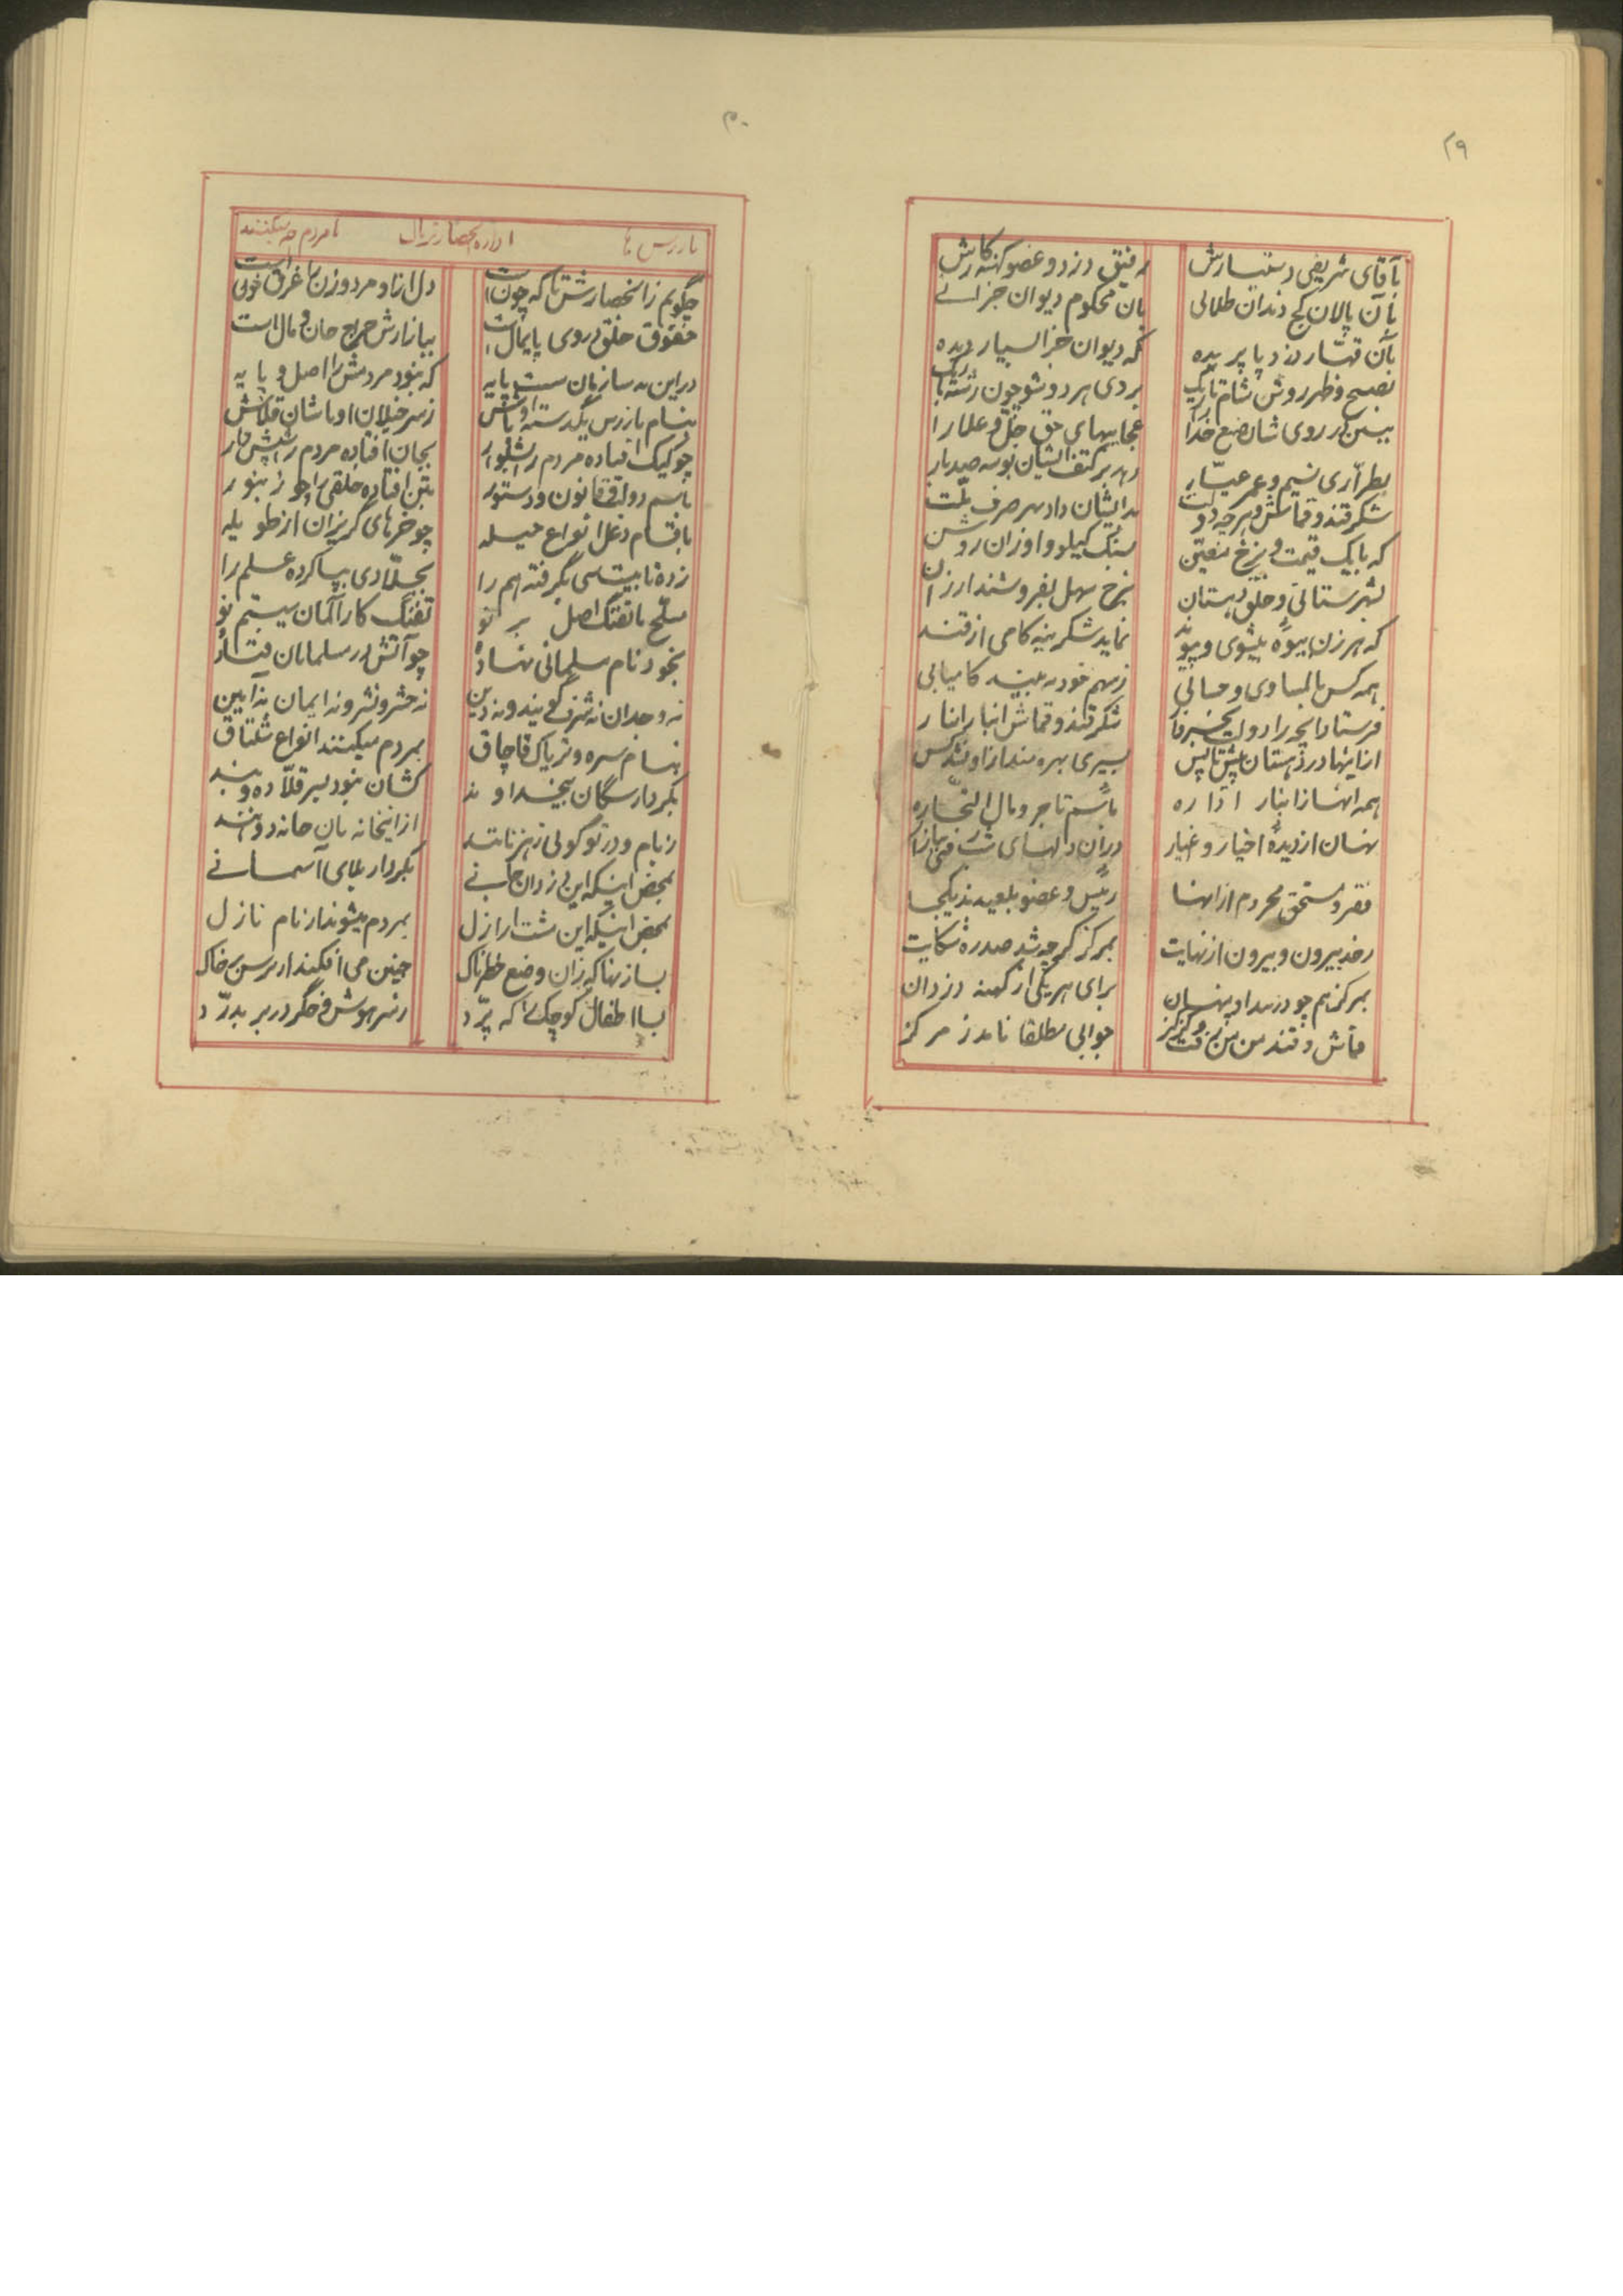 ۲۹
بآقای شریفی دستیارش
رفیق دزد و عضو کهنه کارش
بآن پالان کج دندان طلائی
بان محکوم دیوان جزائے
بآن قهار دزد پا بریده
که دیوان جزا بسیار دیده
بصبح و ظهر روشن شام تاریک
ببین در روی شان صنع خدا را
عجایبهای حق جل و علا را
بطراری نسیم و عمر عیار
زند بر کتف ایشان بوسه صد بار
شکر قند و قماش و هرچه دولت
بدایشان داد بهر صرف ملت
که با یک قیمت و نرخ معین
بسنگ کیلو و اوزان روشن
بشهرستانی و خلق دهستان
بنرخ سهل بفروشند ارزان
که هر زن بیوه بیشوی و پیوند
نماید شکرینه کامی از قند
همه کس بالمساوی و حسابی
ز سهم خود به بیند کامیابی
شکر قند و قماش انبار انبار
از اینها در دهستان پیش تا پس
بسیری بهره مند از او نشد کس
همه انها ز انبار اداره
باسم تاجر و مال التجاره
نهسان از دیده اخیار و غیار
فقیر و مستحق محروم از انها
رئیس و عضو بلعیدند یکجا
رخد بیرون و بیرون از نهایت
بمرکز گرچه شد صدره شکایت
بمرکز هم چو دزد او پنهان
برای هر یکی از کهنه دزدان
قماش و قند من من رفت گز گز
جوابی مطلقا نامد ز مرکز
۳۰
بازرس ها
اداره انحصار تریاک
بامردم چه میکنند
چگویم ز انحصارش تا که چون است
دل از او مرد و زن را غرق خون است
حقوق خلق در وی پایمال است
ببازارش حراج جان و مال است
در این به سازمان سست پایه
که نبود مردمش را اصل و پایه
بنام بازرس یکدسته اوباش
ز سرخیلان اوباشان قلاش
چو کیک افتاده مردم را بشلوار
بجان افتاده مردم را شپش وار
باسم دولت و قانون و دستور
بتن افتاده خلقی را چو زنبور
باقسام دغل انواع حیله
چو خرهای گریزان از طویله
بجلادی بپا کرده علم را
مسلح با تفنگ اصل بر نو
تفنگ کار آلمان سیستم نو
بخود نام مسلمانی نهاده
چو آتش در مسلمانان فتاده
نه وجدان نه شرف گویند و نه دین
نه حشر و نشر و نه ایمان نه آیین
بنام سره و تریاک قاچاق
بمردم میکنند انواع شلتاق
بکردار سگان بیخداوند
کشان نبود بسر قلاده و بند
از اینخانه بان خانه دوانند
بمحض اینکه این دزدان جانے
بکردار بلای آسمانے
بمحض اینکه این مشت اراذل
بمردم میشوند از بام نازل
بسا زنها که زان وضع خطرناک
جنین می افکنند از ترس بر خاک
بسا اطفال کوچک که پرد
ز سر هوش و جگر در بر بدرد